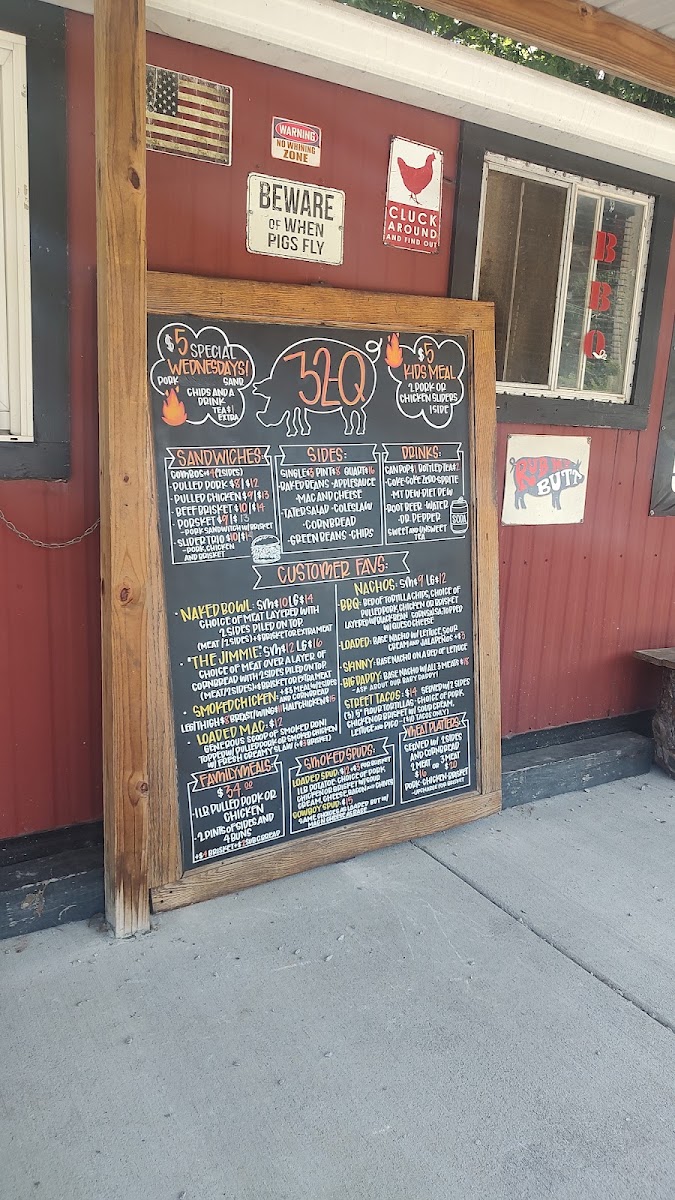 WARNING
NO WHINING
ZONE
BEWARE
OF WHEN
PIGS FLY
CLUCK
AROUND
AND FIND OUT
BBQ
RUB MY
BUTT
$5 SPECIAL
WEDNESDAYS!
PORK SAND
CHIPS AND A
DRINK
TEA $1
EXTRA
32Q
$5
KIDS MEAL
2 PORK OR
CHICKEN SLIDERS
1 SIDE
SANDWICHES:
COMBOS +$4 (2 SIDES)
- PULLED PORK $8 | $12
- PULLED CHICKEN $9 | $13
- BEEF BRISKET $10 | $14
- PORSKET $9 | $13
- PORK SANDWICH W/ BRISKET
- SLIDER TRIO $10 | $14
- PORK, CHICKEN
AND BRISKET
SIDES:
SINGLE $3 PINT $8 QUART $16
- BAKED BEANS - APPLESAUCE
- MAC AND CHEESE
- TATER SALAD - COLESLAW
- CORNBREAD
- GREEN BEANS - CHIPS
DRINKS:
CAN POP $1 BOTTLED TEA $2
- COKE - COKE ZERO - SPRITE
- MT DEW - DIET DEW
- ROOT BEER - WATER
- DR. PEPPER
SWEET AND UNSWEET
TEA
SODA
CUSTOMER FAVS:
• NAKED BOWL: SM $10 LG $14
CHOICE OF MEAT LAYERED WITH
2 SIDES PILED ON TOP
(MEAT/2 SIDES) + $ BRISKET OR EXTRA MEAT
• "THE JIMMIE": SM $12 LG $16
CHOICE OF MEAT OVER A LAYER OF
CORNBREAD WITH 2 SIDES PILED ON TOP
(MEAT/2 SIDES) + $ BRISKET OR EXTRA MEAT
• SMOKED CHICKEN: + $5 MEAL W/ 2 SIDES
AND CORNBREAD
LEG/THIGH $8 BREAST/WING $11 HALF CHICKEN $15
• LOADED MAC: $12
GENEROUS SCOOP OF SMOKED RONI
TOPPED W/ PULLED PORK OR SMOKED CHICKEN
W/ FRESH CREAMY SLAW (+$3 BRISKET)
NACHOS: SM $9 LG $12
BBQ: BED OF TORTILLA CHIPS, CHOICE OF
PULLED PORK, CHICKEN OR BRISKET
LAYERED W/ BLACK BEAN CORN SALSA, TOPPED
W/ QUESO CHEESE
LOADED: BASE NACHO W/ LETTUCE, SOUR
CREAM AND JALAPEÑOS +$3
SKINNY: BASE NACHO ON A BED OF LETTUCE
BIG DADDY: BASE NACHO W/ ALL 3 MEATS $18
- ASK ABOUT OUR BABY DADDY!
STREET TACOS: $14 SERVED W/ 2 SIDES
(3) 5" FLOUR TORTILLAS - CHOICE OF PORK,
CHICKEN OR BRISKET W/ SOUR CREAM,
LETTUCE AND PICO - ($10 TACOS ONLY)
FAMILY MEALS
$34.00
- 1 LB PULLED PORK OR
CHICKEN
- 2 PINTS OF SIDES AND
4 BUNS
+$4 BRISKET +$2 SUB C.BREAD
SMOKED SPUDS:
LOADED SPUD: $12 +$3 FOR BRISKET
1 LB POTATO, CHOICE OF PORK,
CHICKEN OR BRISKET W/ SOUR
CREAM, CHEESE, BACON AND CHIVES
COWBOY SPUD: $15
SAME CHOICES AS LOADED BUT W/
MACN CHEESE AS BASE
MEAT PLATTERS:
SERVED W/ 2 SIDES
AND CORNBREAD
2 MEAT OR 3 MEAT
$16 $20
PORK - CHICKEN - BRISKET